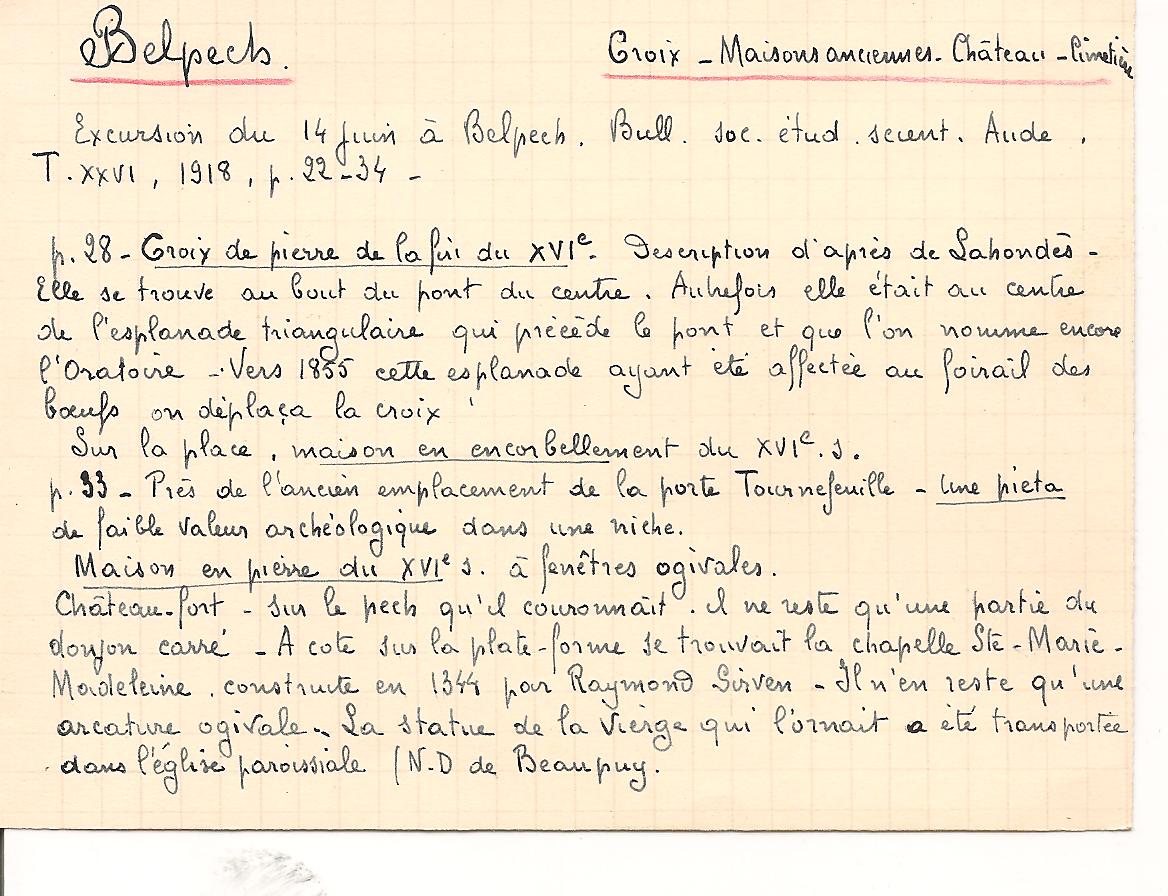 Belpech.
Croix - Maisons anciennes - Château - Cimetière
Excursion du 14 juin à Belpech. Bull. soc. étud. scient. Aude.
T. XXVI, 1918, p. 22-34 -
p. 28 - Croix de pierre de la fin du XVIe. Description d'après de Lahondès -
Elle se trouve au bout du pont du centre. Autrefois elle était au centre
de l'esplanade triangulaire qui précède le pont et que l'on nomme encore
l'Oratoire - Vers 1855 cette esplanade ayant été affectée au foirail des
bœufs on déplaça la croix
Sur la place, maison en encorbellement du XVIe. s.
p. 33 - Près de l'ancien emplacement de la porte Tournefeuille - Une pieta
de faible valeur archéologique dans une niche.
Maison en pierre du XVIe s. à fenêtres ogivales.
Château-fort - sur le pech qu'il couronnait. il ne reste qu'une partie du
donjon carré - A coté sur la plate-forme se trouvait la chapelle Ste-Marie-
Madeleine. constructe en 1344 par Raymond Sirven - Il n'en reste qu'une
arcature ogivale. La statue de la Vierge qui l'ornait a été transportée
dans l'église paroissiale (N.D de Beaupuy.